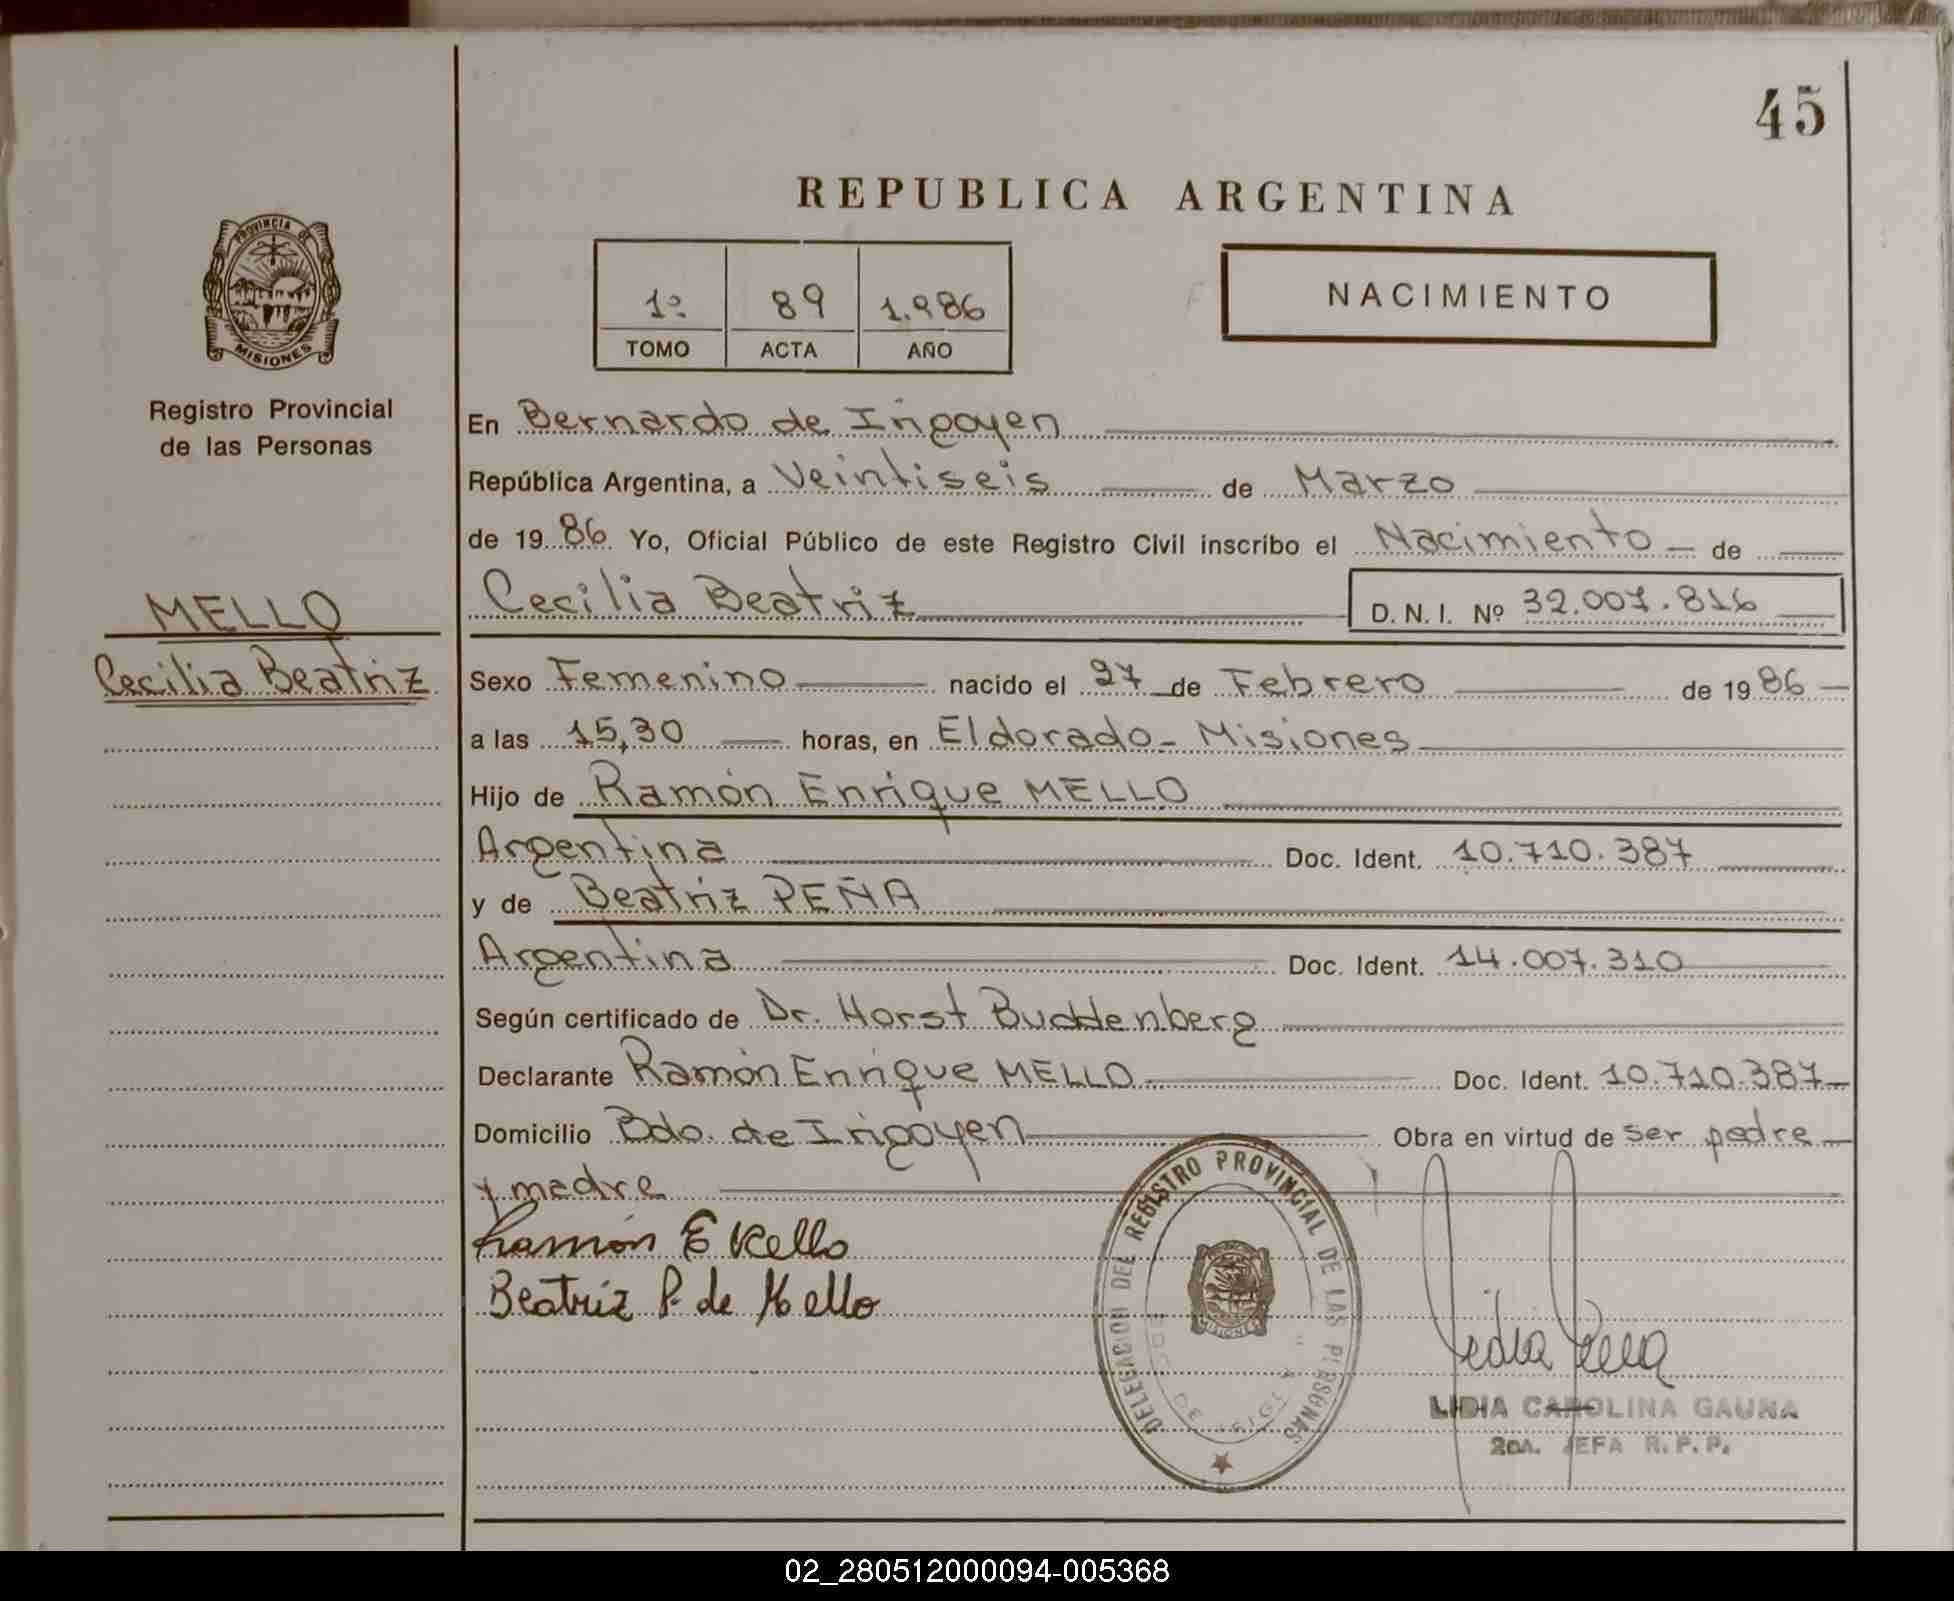 45
REPUBLICA ARGENTINA
PROVINCIA DE
MISIONES
1º 89 1.986
TOMO ACTA AÑO
NACIMIENTO
Registro Provincial
de las Personas
MELLO
Cecilia Beatriz
En Bernardo de Irigoyen
República Argentina, a Veintiseis de Marzo
de 19 86 Yo, Oficial Público de este Registro Civil inscribo el Nacimiento de
Cecilia Beatriz D. N. I. Nº 32.007.816
Sexo Femenino nacido el 27 de Febrero de 19 86
a las 15,30 horas, en Eldorado - Misiones
Hijo de Ramón Enrique MELLO
Argentina Doc. Ident. 10.710.387
y de Beatriz PEÑA
Argentina Doc. Ident. 14.007.310
Según certificado de Dr. Horst Buddenberg
Declarante Ramón Enrique MELLO Doc. Ident. 10.710.387
Domicilio Bdo. de Irigoyen Obra en virtud de ser padre
y madre
Ramón E Mello
Beatriz P. de Mello
DELEGACION DEL REGISTRO PROVINCIAL DE LAS PERSONAS
BDO. DE
MISIONES
LIDIA CAROLINA GAUNA
2DA. JEFA R. P. P.
02_280512000094-005368